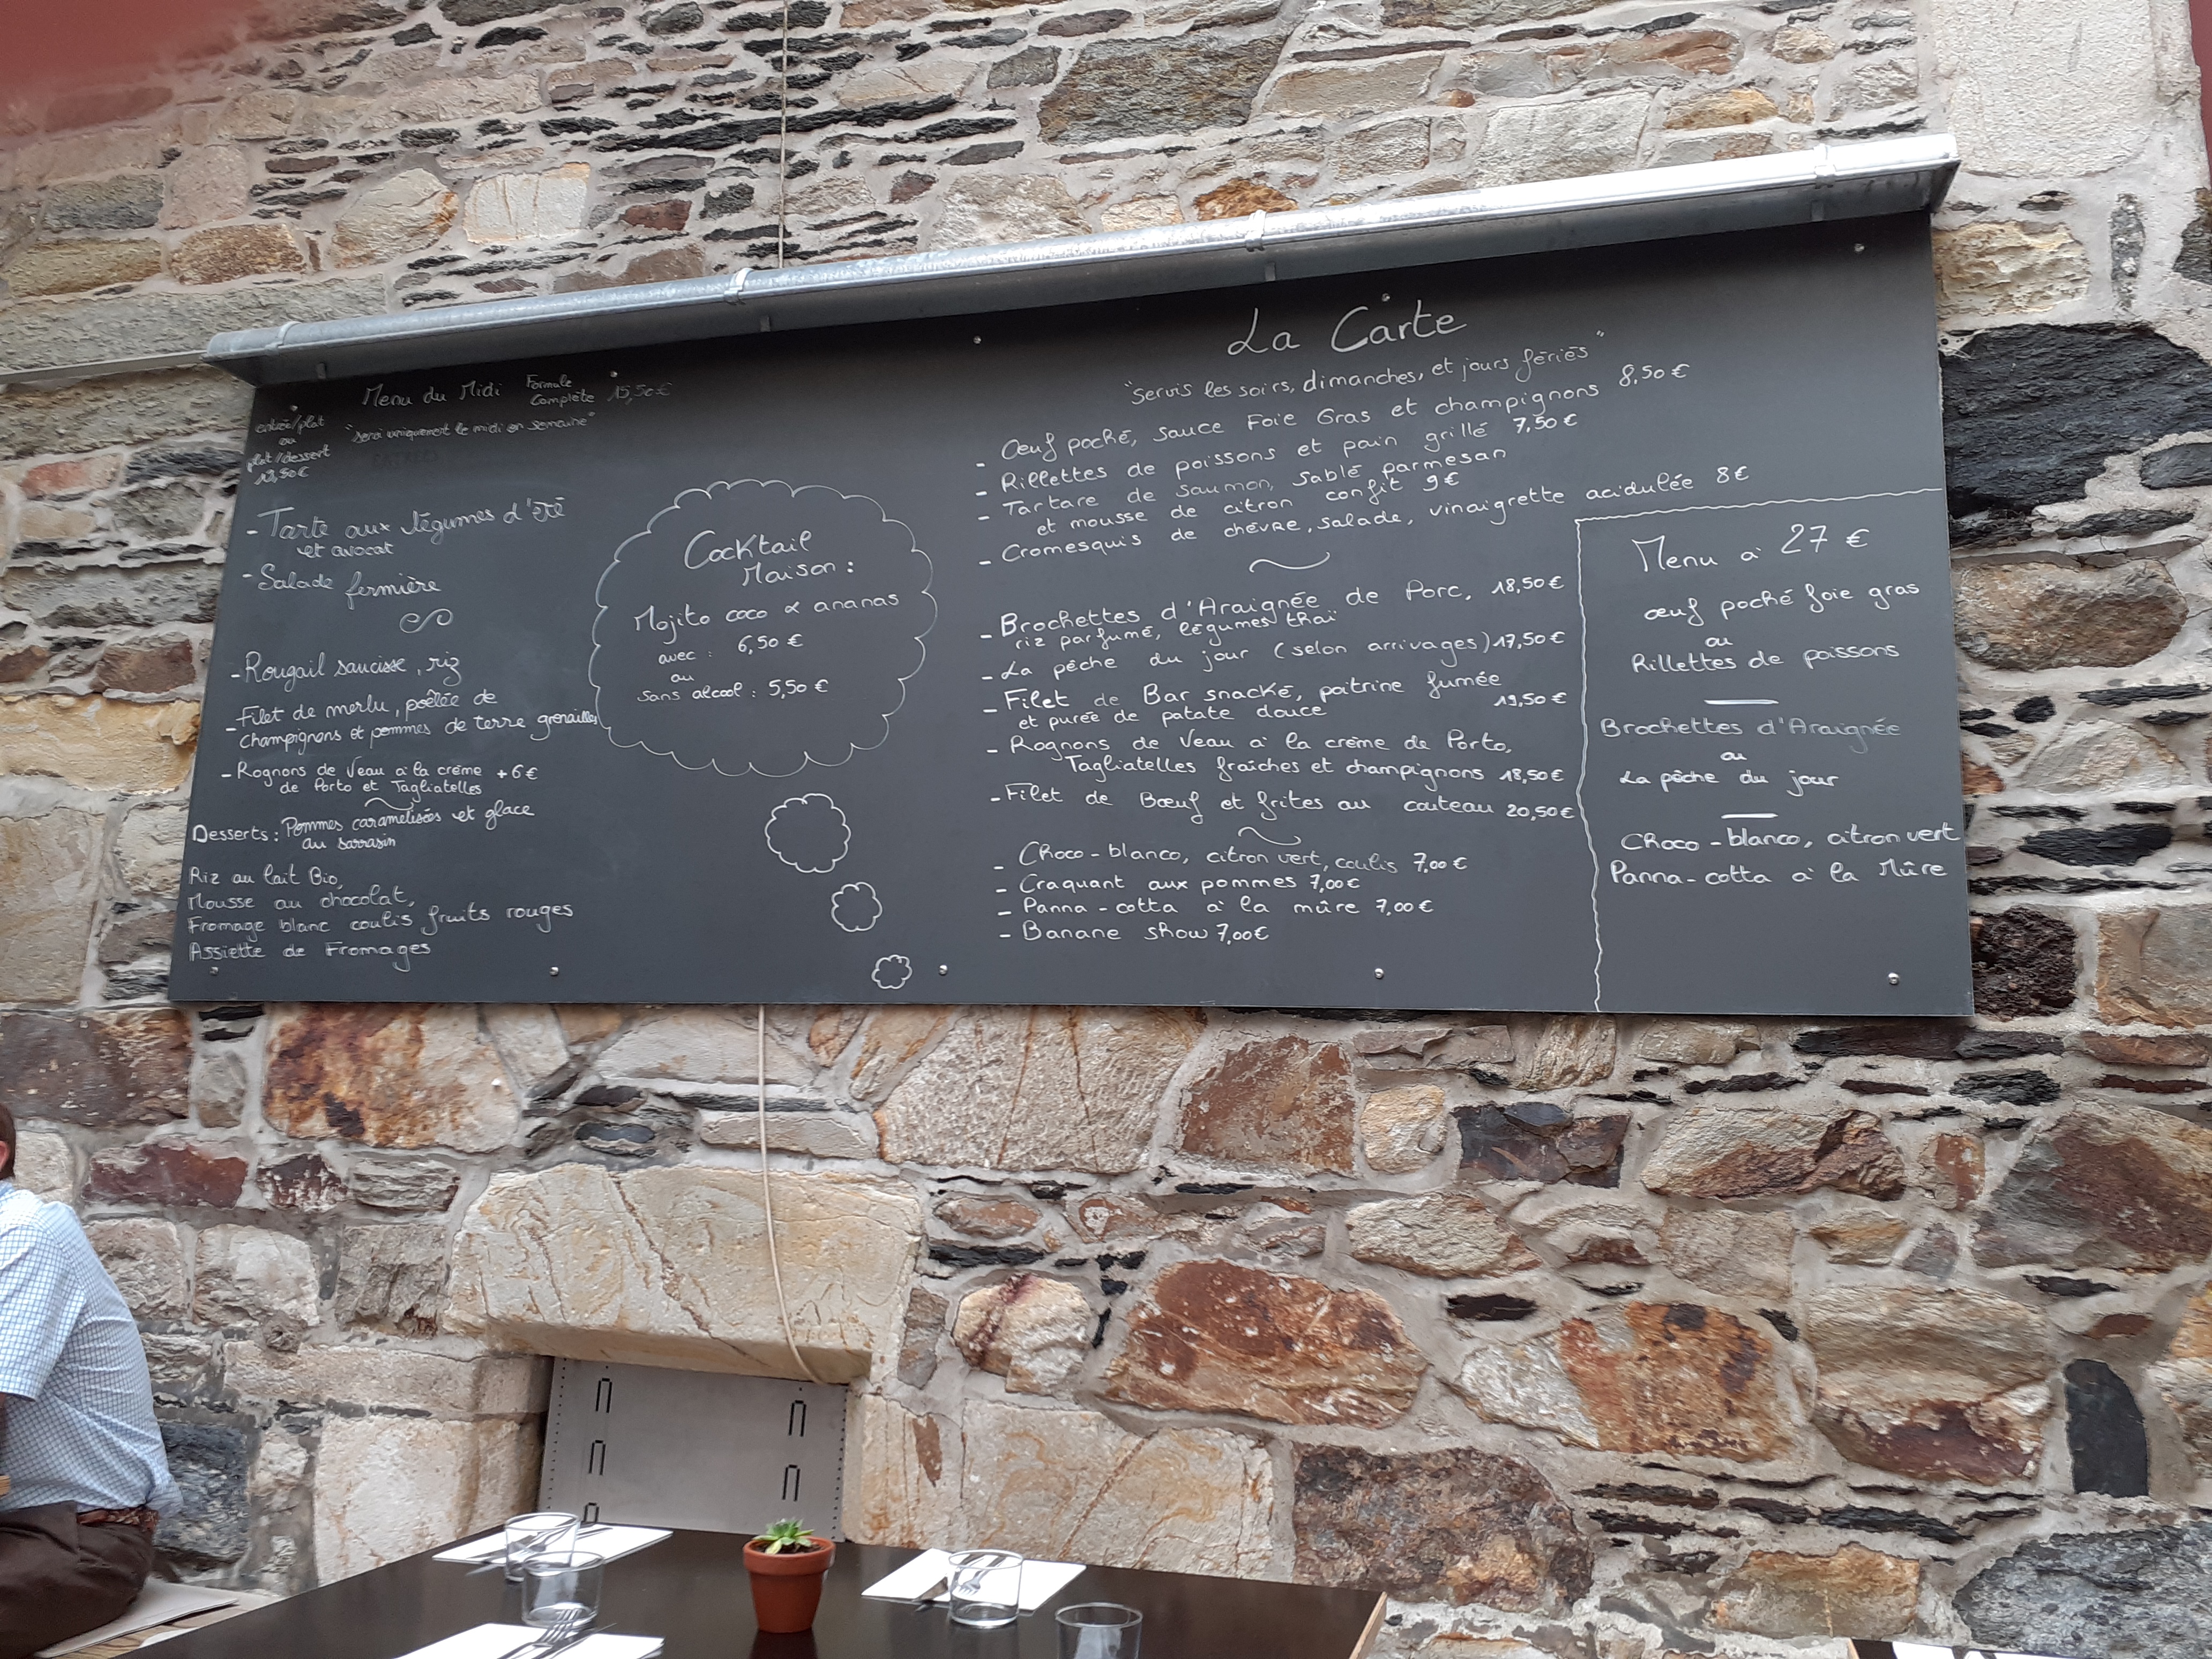 Menu du Midi Formule Complète 15,50€
entrée/plat
ou
plat/dessert
"servi uniquement le midi en semaine"
- Tarte aux légumes d'été
et avocat
- Salade fermière
- Rougail saucisse, riz
- Filet de merlu, poêlée de
champignons et pommes de terre grenailles
- Rognons de Veau à la crème +6€
de Porto et Tagliatelles
Desserts : Pommes caramelisées et glace
au sarrasin
Riz au lait Bio,
Mousse au chocolat,
Fromage blanc coulis fruits rouges
Assiette de Fromages
Cocktail
Maison :
Mojito coco & ananas
avec : 6,50 €
ou
sans alcool : 5,50 €
La Carte
"servis les soirs, dimanches, et jours fériés"
- Œuf poché, sauce Foie Gras et champignons 8,50€
- Rillettes de poissons et pain grillé 7,50€
- Tartare de saumon, sablé parmesan
et mousse de citron confit 9€
- Cromesquis de chèvre, salade, vinaigrette acidulée 8€
- Brochettes d'Araignée de Porc, 18,50€
riz parfumé, légumes thaï
- La pêche du jour (selon arrivages) 17,50€
- Filet de Bar snacké, poitrine fumée
et purée de patate douce 19,50€
- Rognons de Veau à la crème de Porto,
Tagliatelles fraîches et champignons 18,50€
- Filet de Bœuf et frites au couteau 20,50€
- Choco-blanco, citron vert, coulis 7,00€
- Craquant aux pommes 7,00€
- Panna-cotta à la mûre 7,00€
- Banane show 7,00€
Menu à 27 €
œuf poché foie gras
ou
Rillettes de poissons
Brochettes d'Araignée
ou
La pêche du jour
Choco-blanco, citron vert
Panna-cotta à la Mûre